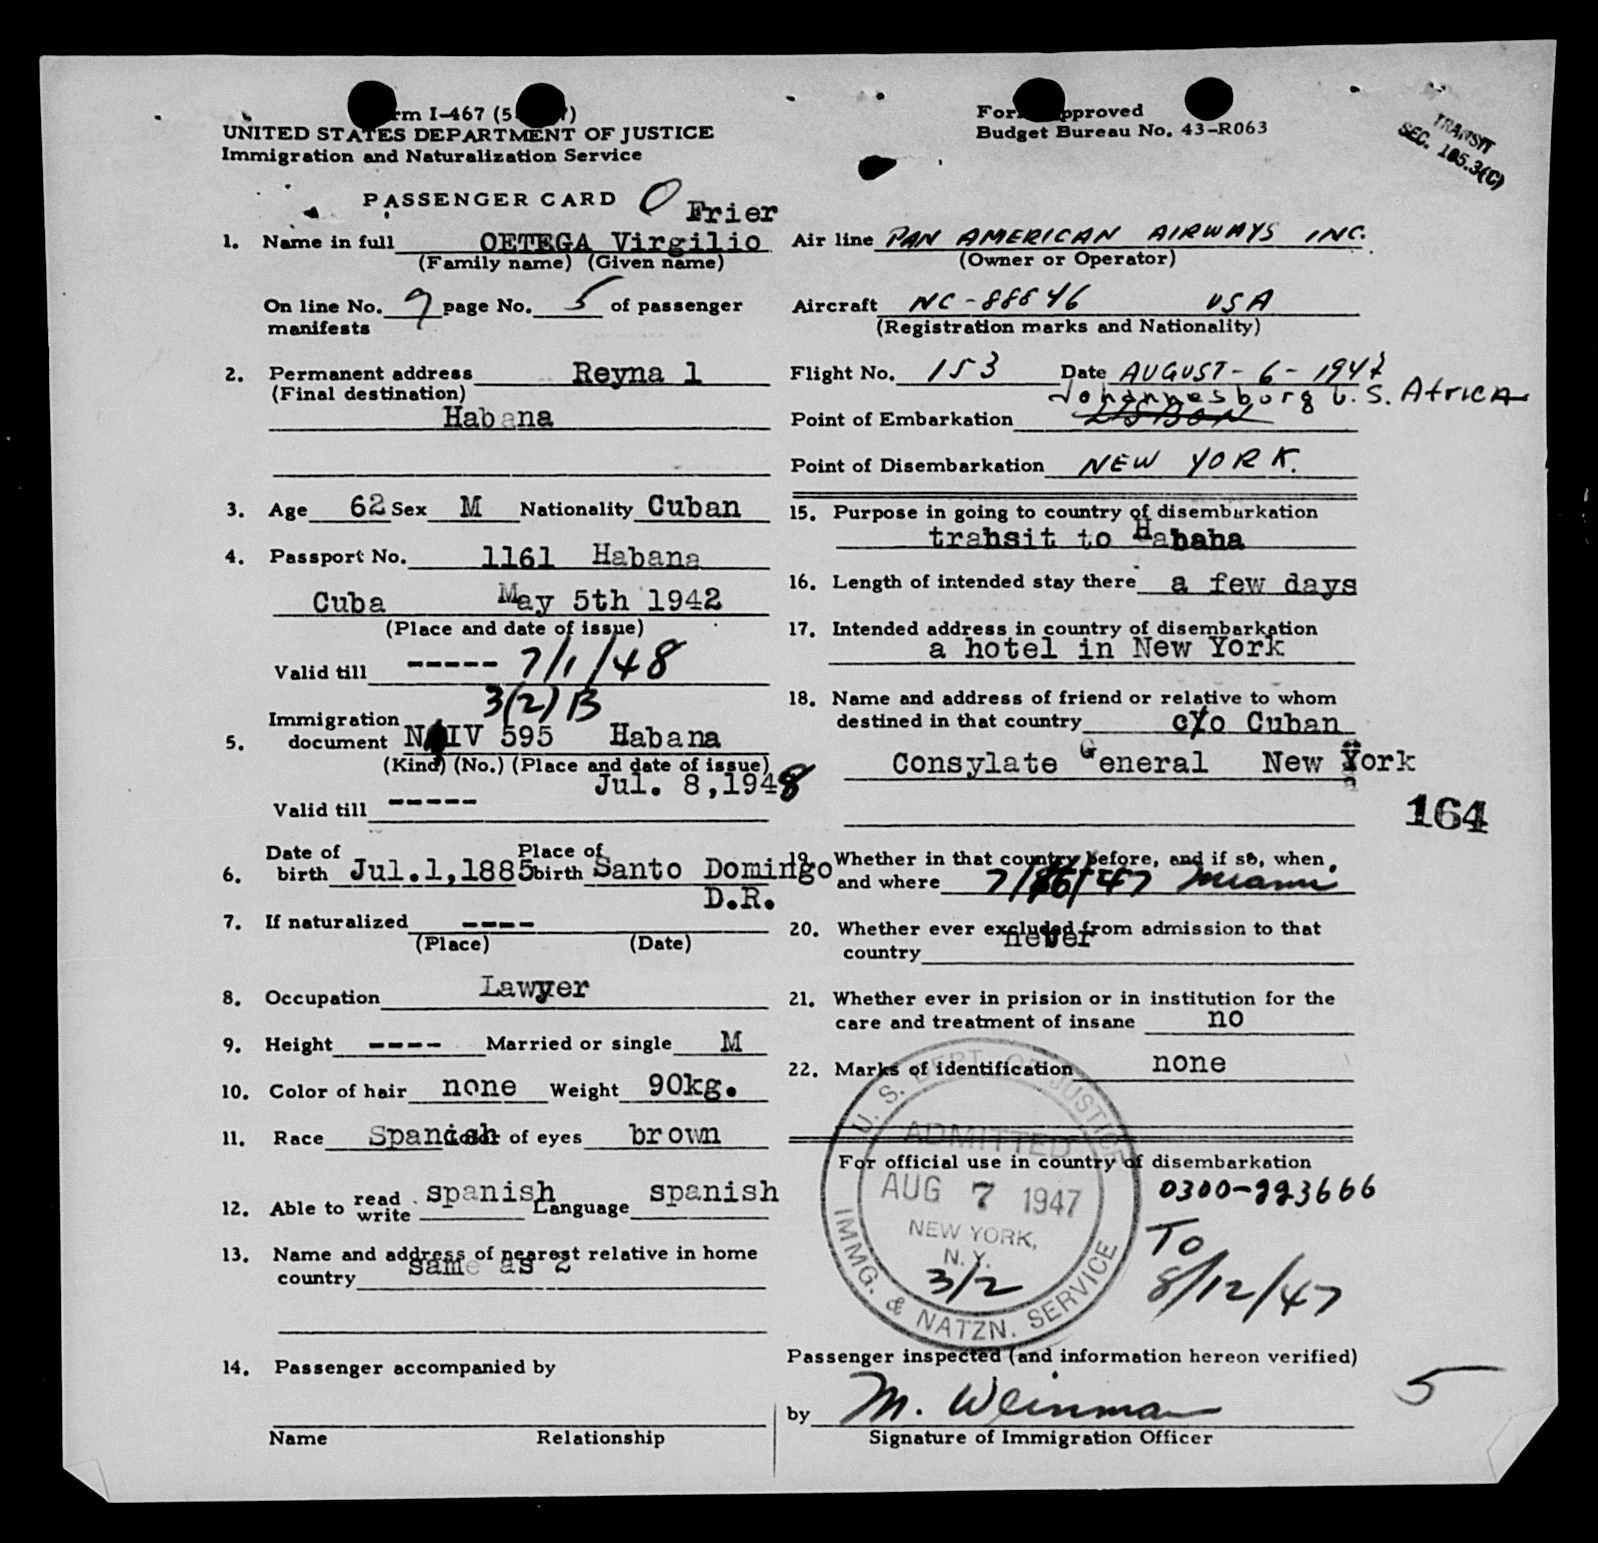 rm I-467 (5
UNITED STATES DEPARTMENT OF JUSTICE
Immigration and Naturalization Service
PASSENGER CARD
Frier
1. Name in full OETEGA Virgilio
(Family name) (Given name)
On line No. 9 page No. 5 of passenger
manifests
2. Permanent address Reyna 1
(Final destination)
Habana
3. Age 62 Sex M Nationality Cuban
4. Passport No. 1161 Habana
Cuba May 5th 1942
(Place and date of issue)
Valid till ----- 7/1/48
3(2) B
5. Immigration document IV 595 Habana
(Kind) (No.) (Place and date of issue)
Jul. 8,1948
Valid till -----
6. Date of birth Jul.1,1885 Place of birth Santo Domingo
D.R.
7. If naturalized ----
(Place) (Date)
8. Occupation Lawyer
9. Height ---- Married or single M
10. Color of hair none Weight 90kg.
11. Race Spanish Color of eyes brown
12. Able to read write spanish Language spanish
13. Name and address of nearest relative in home
country same as 2
14. Passenger accompanied by
Name Relationship
Form Approved
Budget Bureau No. 43-R063
TRANSIT
SEC. 105.3(C)
Air line PAN AMERICAN AIRWAYS INC.
(Owner or Operator)
Aircraft NC-88846 USA
(Registration marks and Nationality)
Flight No. 153 Date AUGUST-6-1947
Johannesburg U.S. Africa
Point of Embarkation LISBON
Point of Disembarkation NEW YORK.
15. Purpose in going to country of disembarkation
transit to Habana
16. Length of intended stay there a few days
17. Intended address in country of disembarkation
a hotel in New York
18. Name and address of friend or relative to whom
destined in that country c/o Cuban
Consylate General New York
164
19. Whether in that country before, and if so, when
and where 7/ /47 Miami
20. Whether ever excluded from admission to that
country never
21. Whether ever in prision or in institution for the
care and treatment of insane no
22. Marks of identification none
For official use in country of disembarkation
0300-223666
U. S. DEPT. OF JUSTICE
ADMITTED
AUG 7 1947
NEW YORK,
N. Y.
3/2
IMMG. & NATZN. SERVICE
To
8/12/47
Passenger inspected (and information hereon verified)
by M. Weinman
Signature of Immigration Officer
5